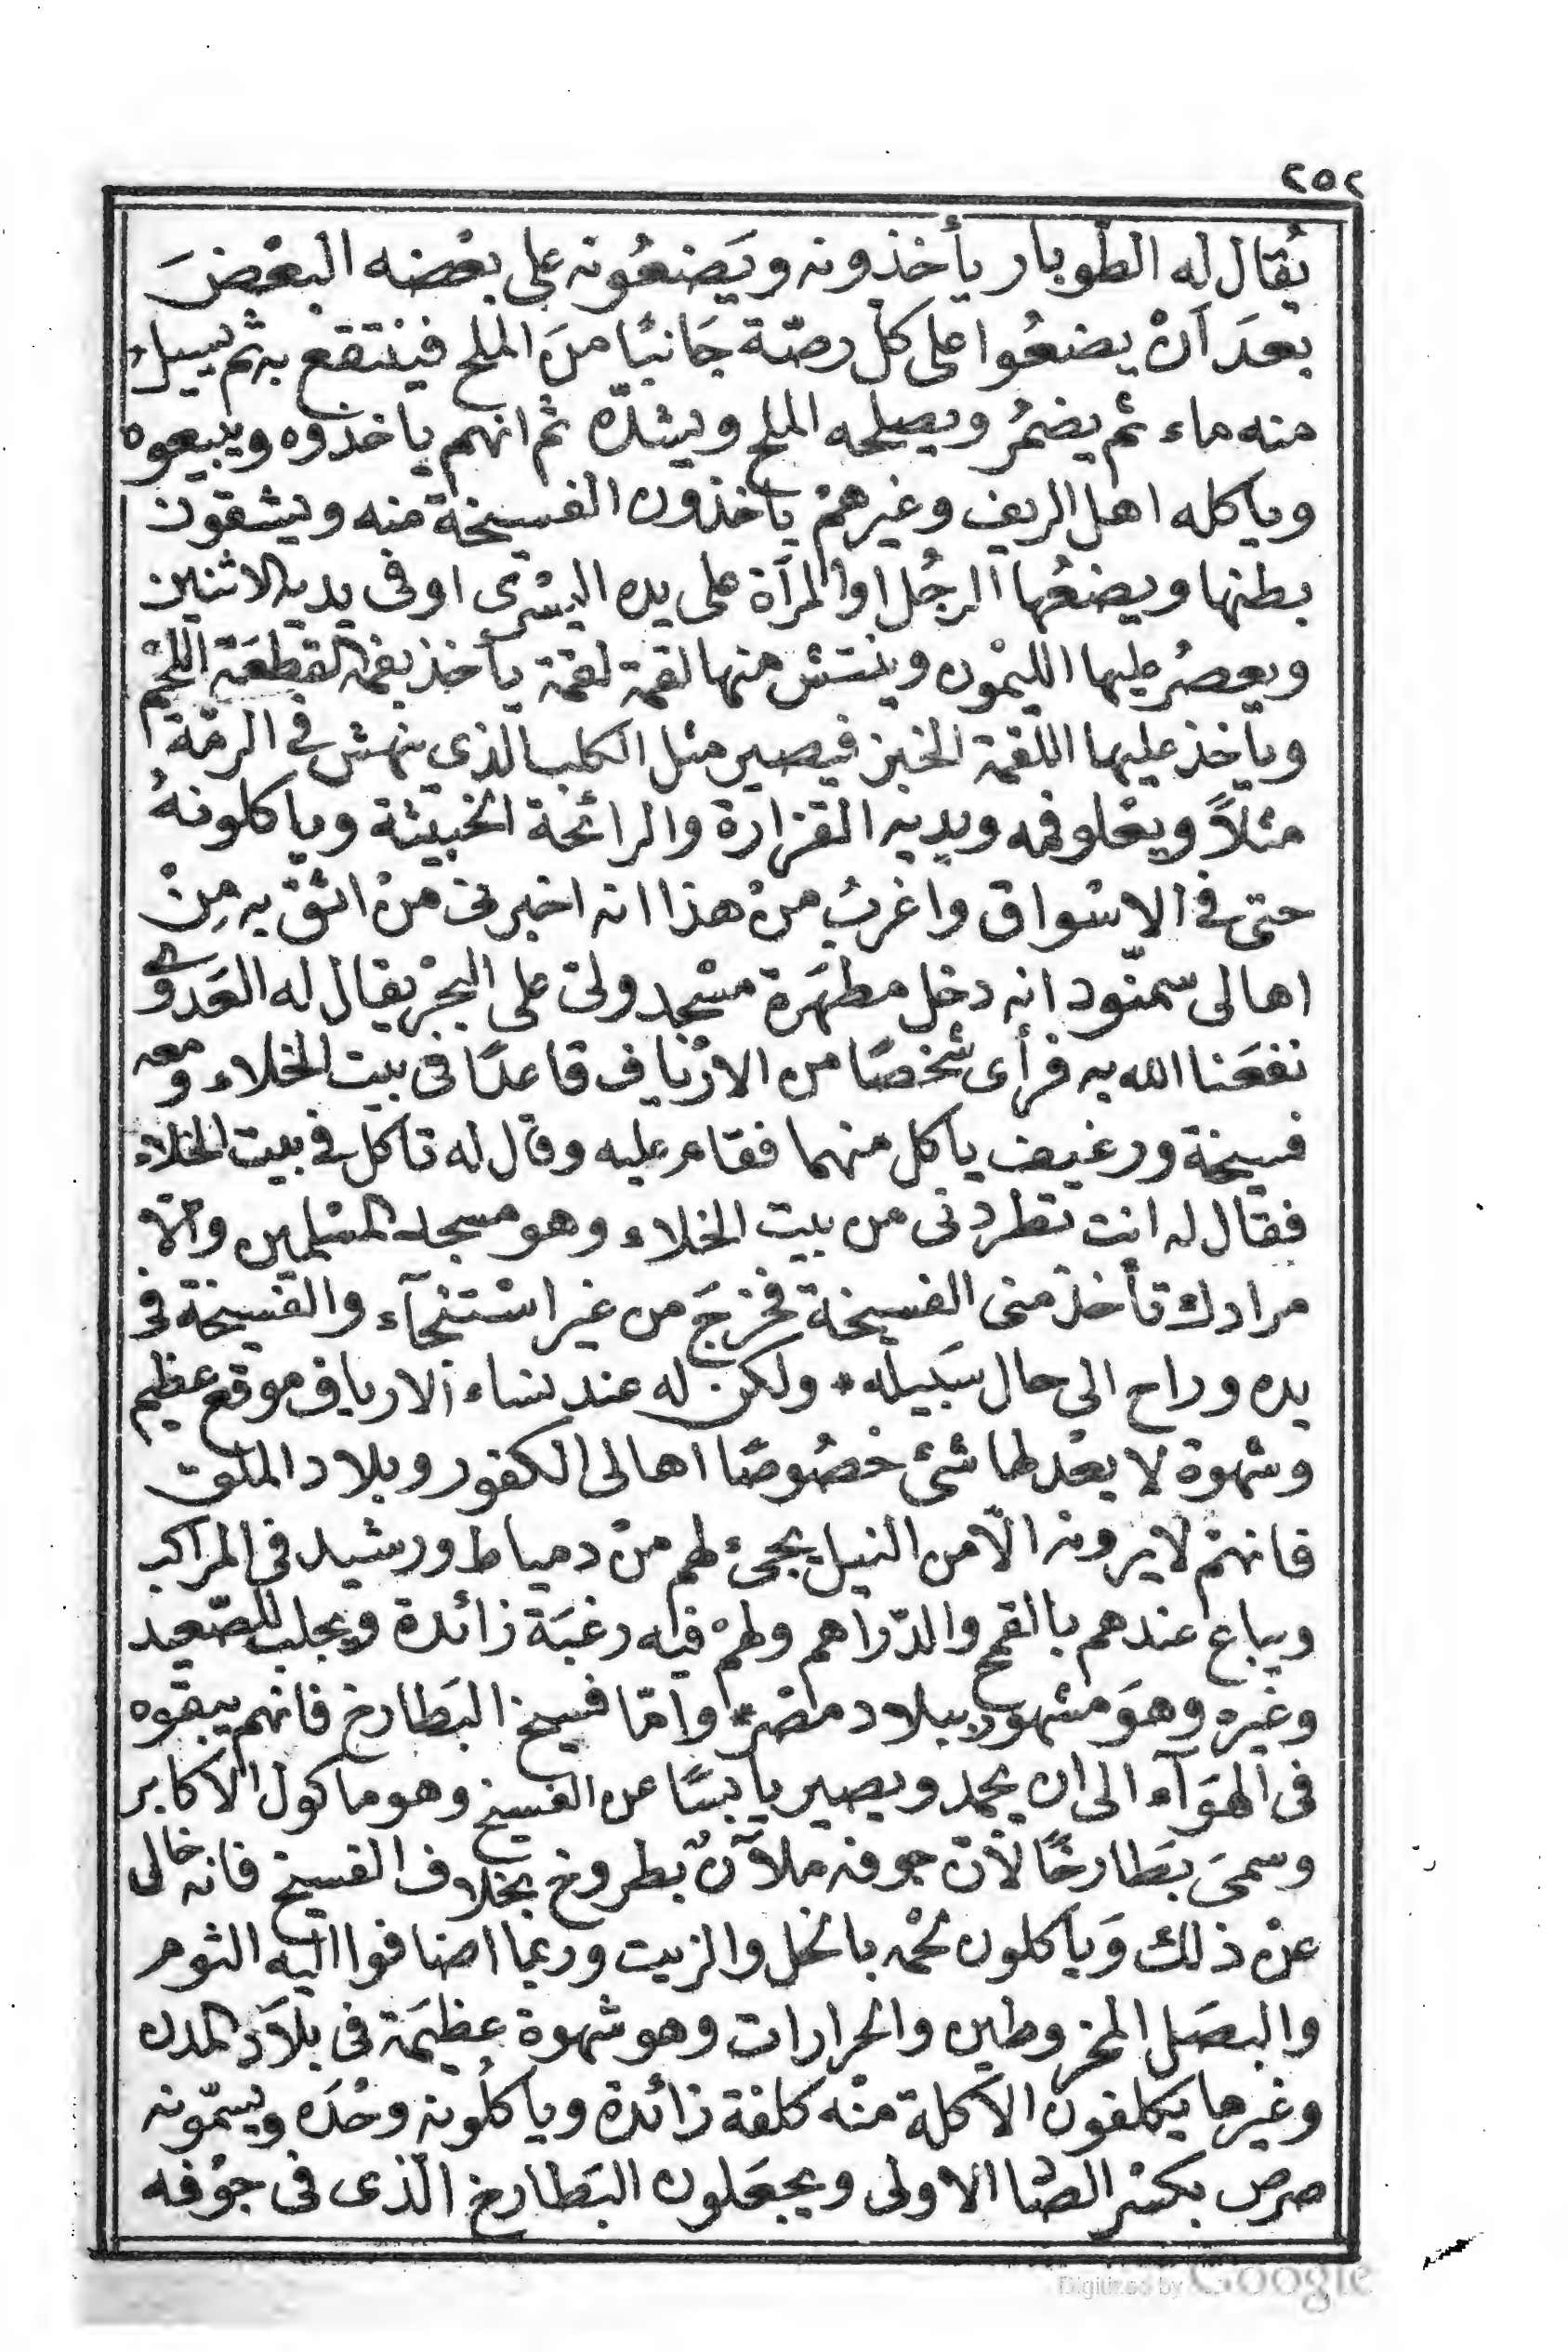 ٢٥٢
يُقال له الطوبار يأخذونه ويَضعُونه على بعْضه البعْضَ
بعدَ اَنْ يضعُوا على كلّ رصّة جَانبًا منَ الملح فينتقع به ثم يسيلُ
منه ماء ثم يضمُر ويصلحه الملح ويشدّه ثم انهم ياخذوه ويبيعوه
وياكله اهل الريف وغيرهمْ ياخذون الفسيخة منه ويشقون
بطنها ويضعُها الرجُل او المرأة على يده اليسْرى او فى يديه الاثنين
ويعصرُ عليها الليمُون وينتش منها لقمة لقمة يأخذ بفمه القطعَة اللحْم
ويأخذ عليها اللقمة الخبز فيصير مثل الكلب الذى ينهش فى الرمّة
مثلاً ويعْلو فمه ويديه القزارة والرائحة الخبيثة وياكلونهُ
حتى فى الاسْواق واغربُ منْ هذا انه اخبرنى منْ اثق به مِنْ
اهالى سمنّود انه دخل مطهَرة مسْجد ولىّ على البحْر يقال له العَدوىّ
نفعَنا الله به فرأى شخصًا من الارْياف قاعدًا فى بيت الخلاء ومعه
فسيخة ورغيف ياكل منهما فقام عليه وقال له تاكل فى بيت الخلاء
فقال له انت تطردنى من بيت الخلاء وهو مسجد المسْلمين والاّ
مرادك تأخذ منى الفسيخة فخرَجَ من غير استنجآء والفسيخة فى
يده وراح الى حال سَبيله * ولكن له عند نساء الارياف موقع عظيم
وشهوة لا يعْدلها شئ خصُوصًا اهالى الكفور وبلاد الملق
فانهمْ لا يرونه الاّ من النيل يجئ لهم منْ دمياط ورشيد فى المراكب
ويباع عندهم بالقمح والدّراهم ولهمْ فيه رغبَة زائدة ويجلب للصّعيد
وغيره وهوَ مشهور ببلاد مصْر * وامّا فسيخ البَطارخ فانهم يبقوه
فى الهوَآء الى ان يجمد ويصير يابسًا عن الفسيخ وهو ماكول الاكابر
وسمىَ بَطارخًا لانّ جوفه ملآنٌ بطروخ بخلاف الفسيخ فانه خالى
عنْ ذلك وَياكلون لحمْه بالخل والزيت وربما اضافوا اليه الثوم
والبصَل المخروطين والحرارات وهو شهوة عظيمَة فى بلاَد المدن
وغيرها يكلفون الاكلة منْه كلفة زائدة وياكلُونه وحْدَه ويسمّونه
صرص بكسْر الصّا الاولى ويجعَلون البَطارخ الّذى فى جوْفه
Digitized by Google